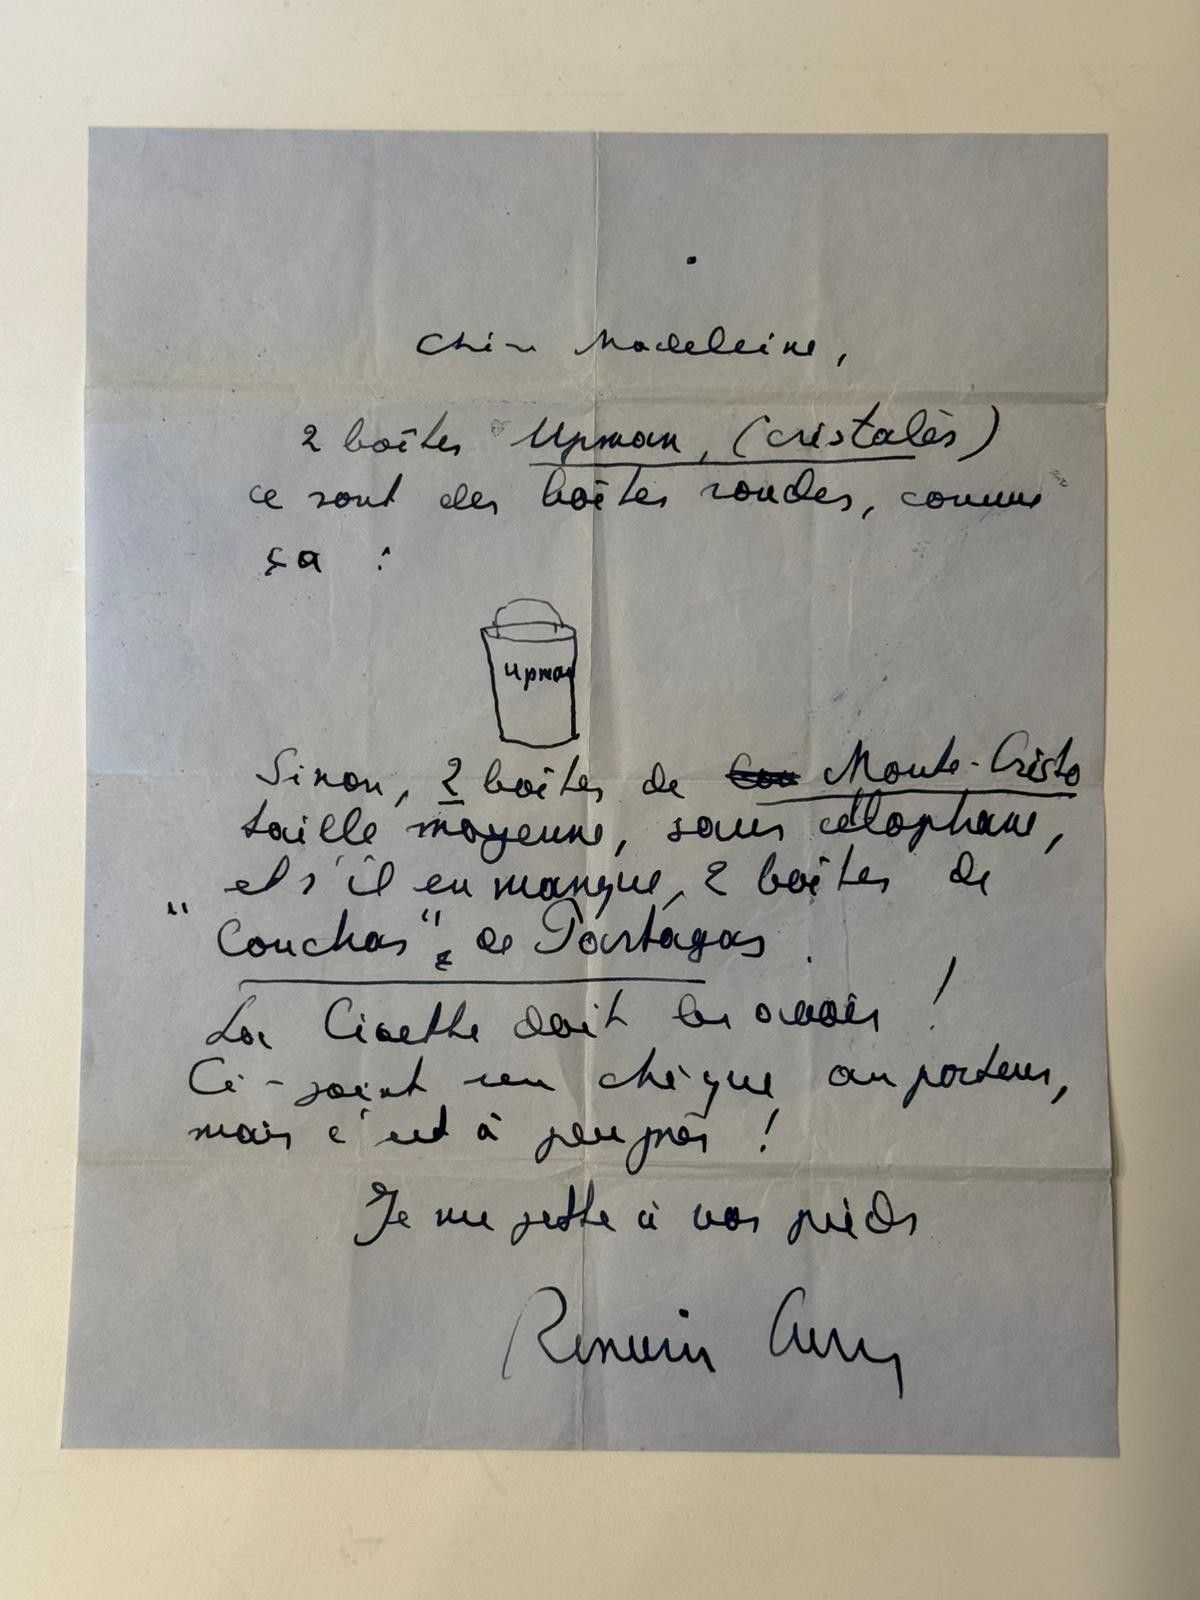 Chère Madeleine,
2 boîtes Upman, (cristalès)
ce sont des boîtes rondes, comme
ça :
Upman
Sinon, 2 boîtes de Monte-Cristo
taille moyenne, sans cellophane,
et s'il en manque, 2 boîtes de
"Conchas", de Partagas.
La Civette doit les avoir !
Ci-joint un chèque au porteur,
mais c'est à peu près !
Je me jette à vos pieds
Romain Gary